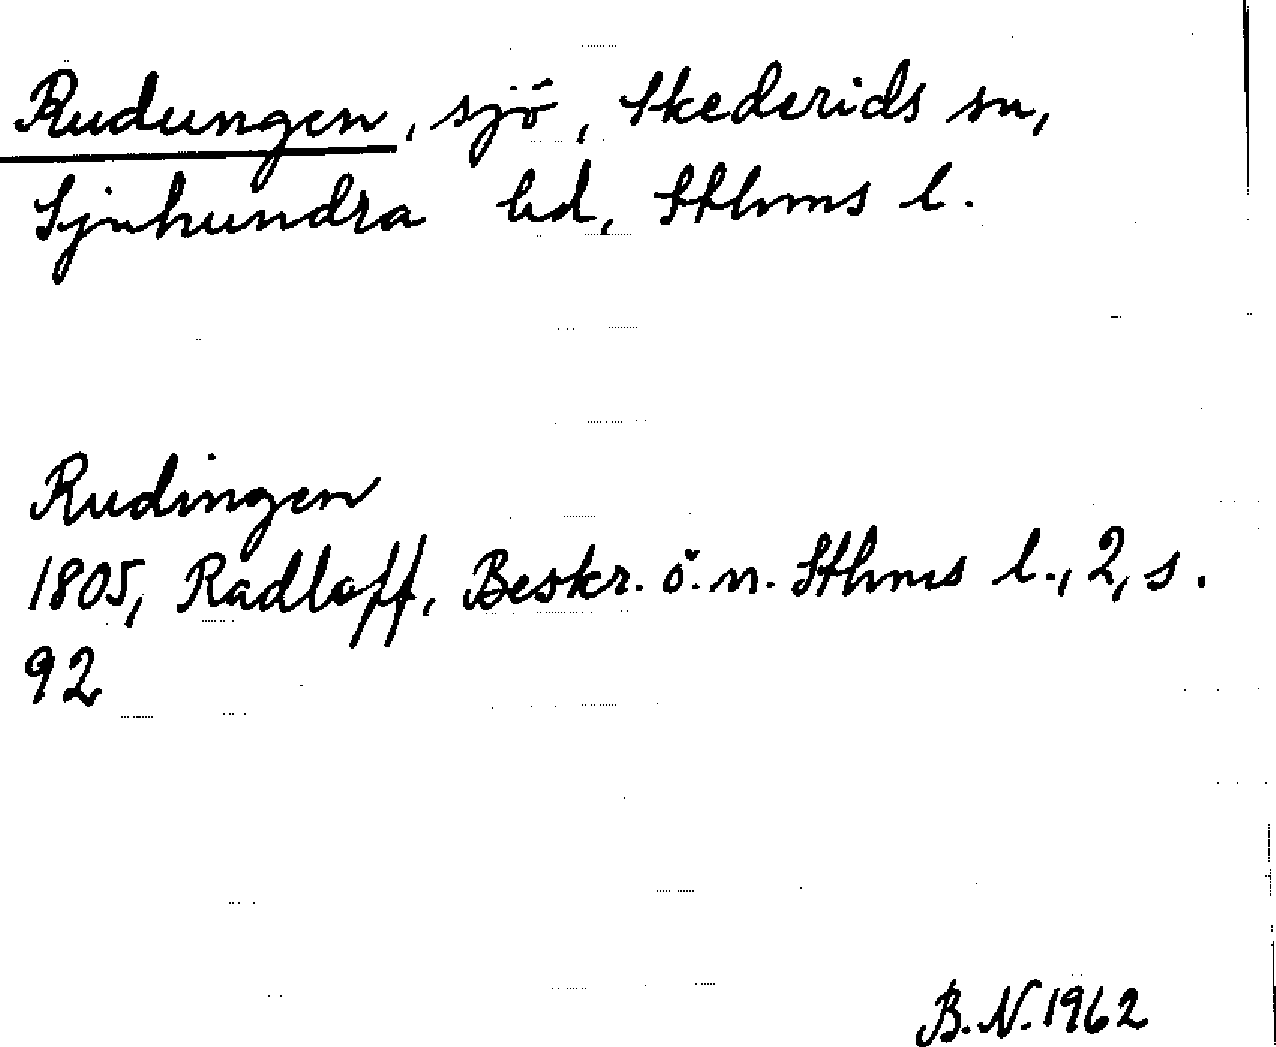 Rudungen, sjö, Skederids sn,
Sjuhundra hd, Sthms l.
Rudingen
1805, Radloff, Beskr. ö. n. Sthms l., 2, s.
92
B.N. 1962